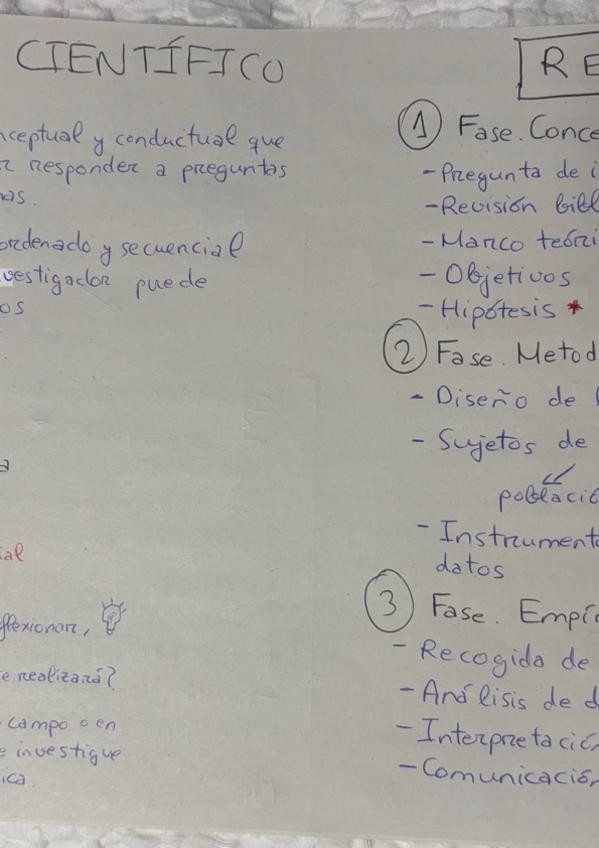 CIENTÍFICO
nceptual y conductual que
r responder a preguntas
nas.
ordenado y secuencial
vestigador puede
os
a
ial
flexionar,
e realizará?
campo o en
e investigue
ica.
RE
1 Fase. Conce
- Pregunta de i
- Revisión bibl
- Marco teóri
- Objetivos
- Hipótesis *
2 Fase. Metod
- Diseño de l
- Sujetos de
població
- Instrumento
datos
3 Fase. Empír
- Recogida de
- Análisis de d
- Interpretación
- Comunicación